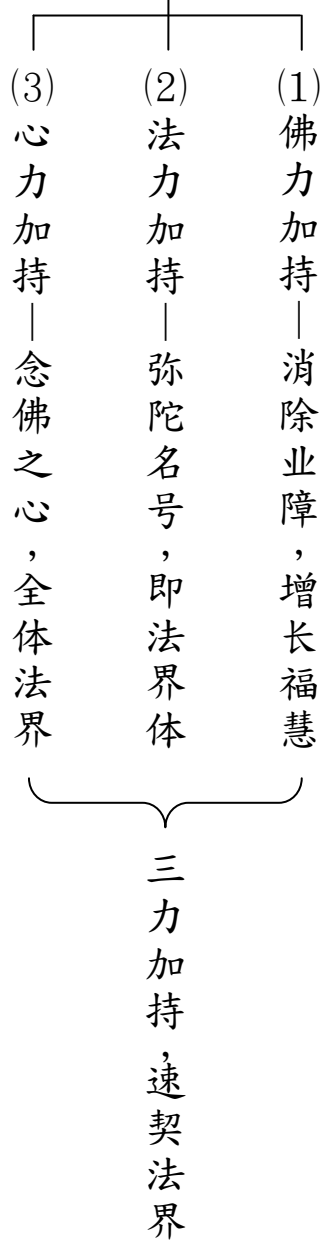 (1)佛力加持—消除业障，增长福慧
(2)法力加持—弥陀名号，即法界体
(3)心力加持—念佛之心，全体法界
三力加持，速契法界